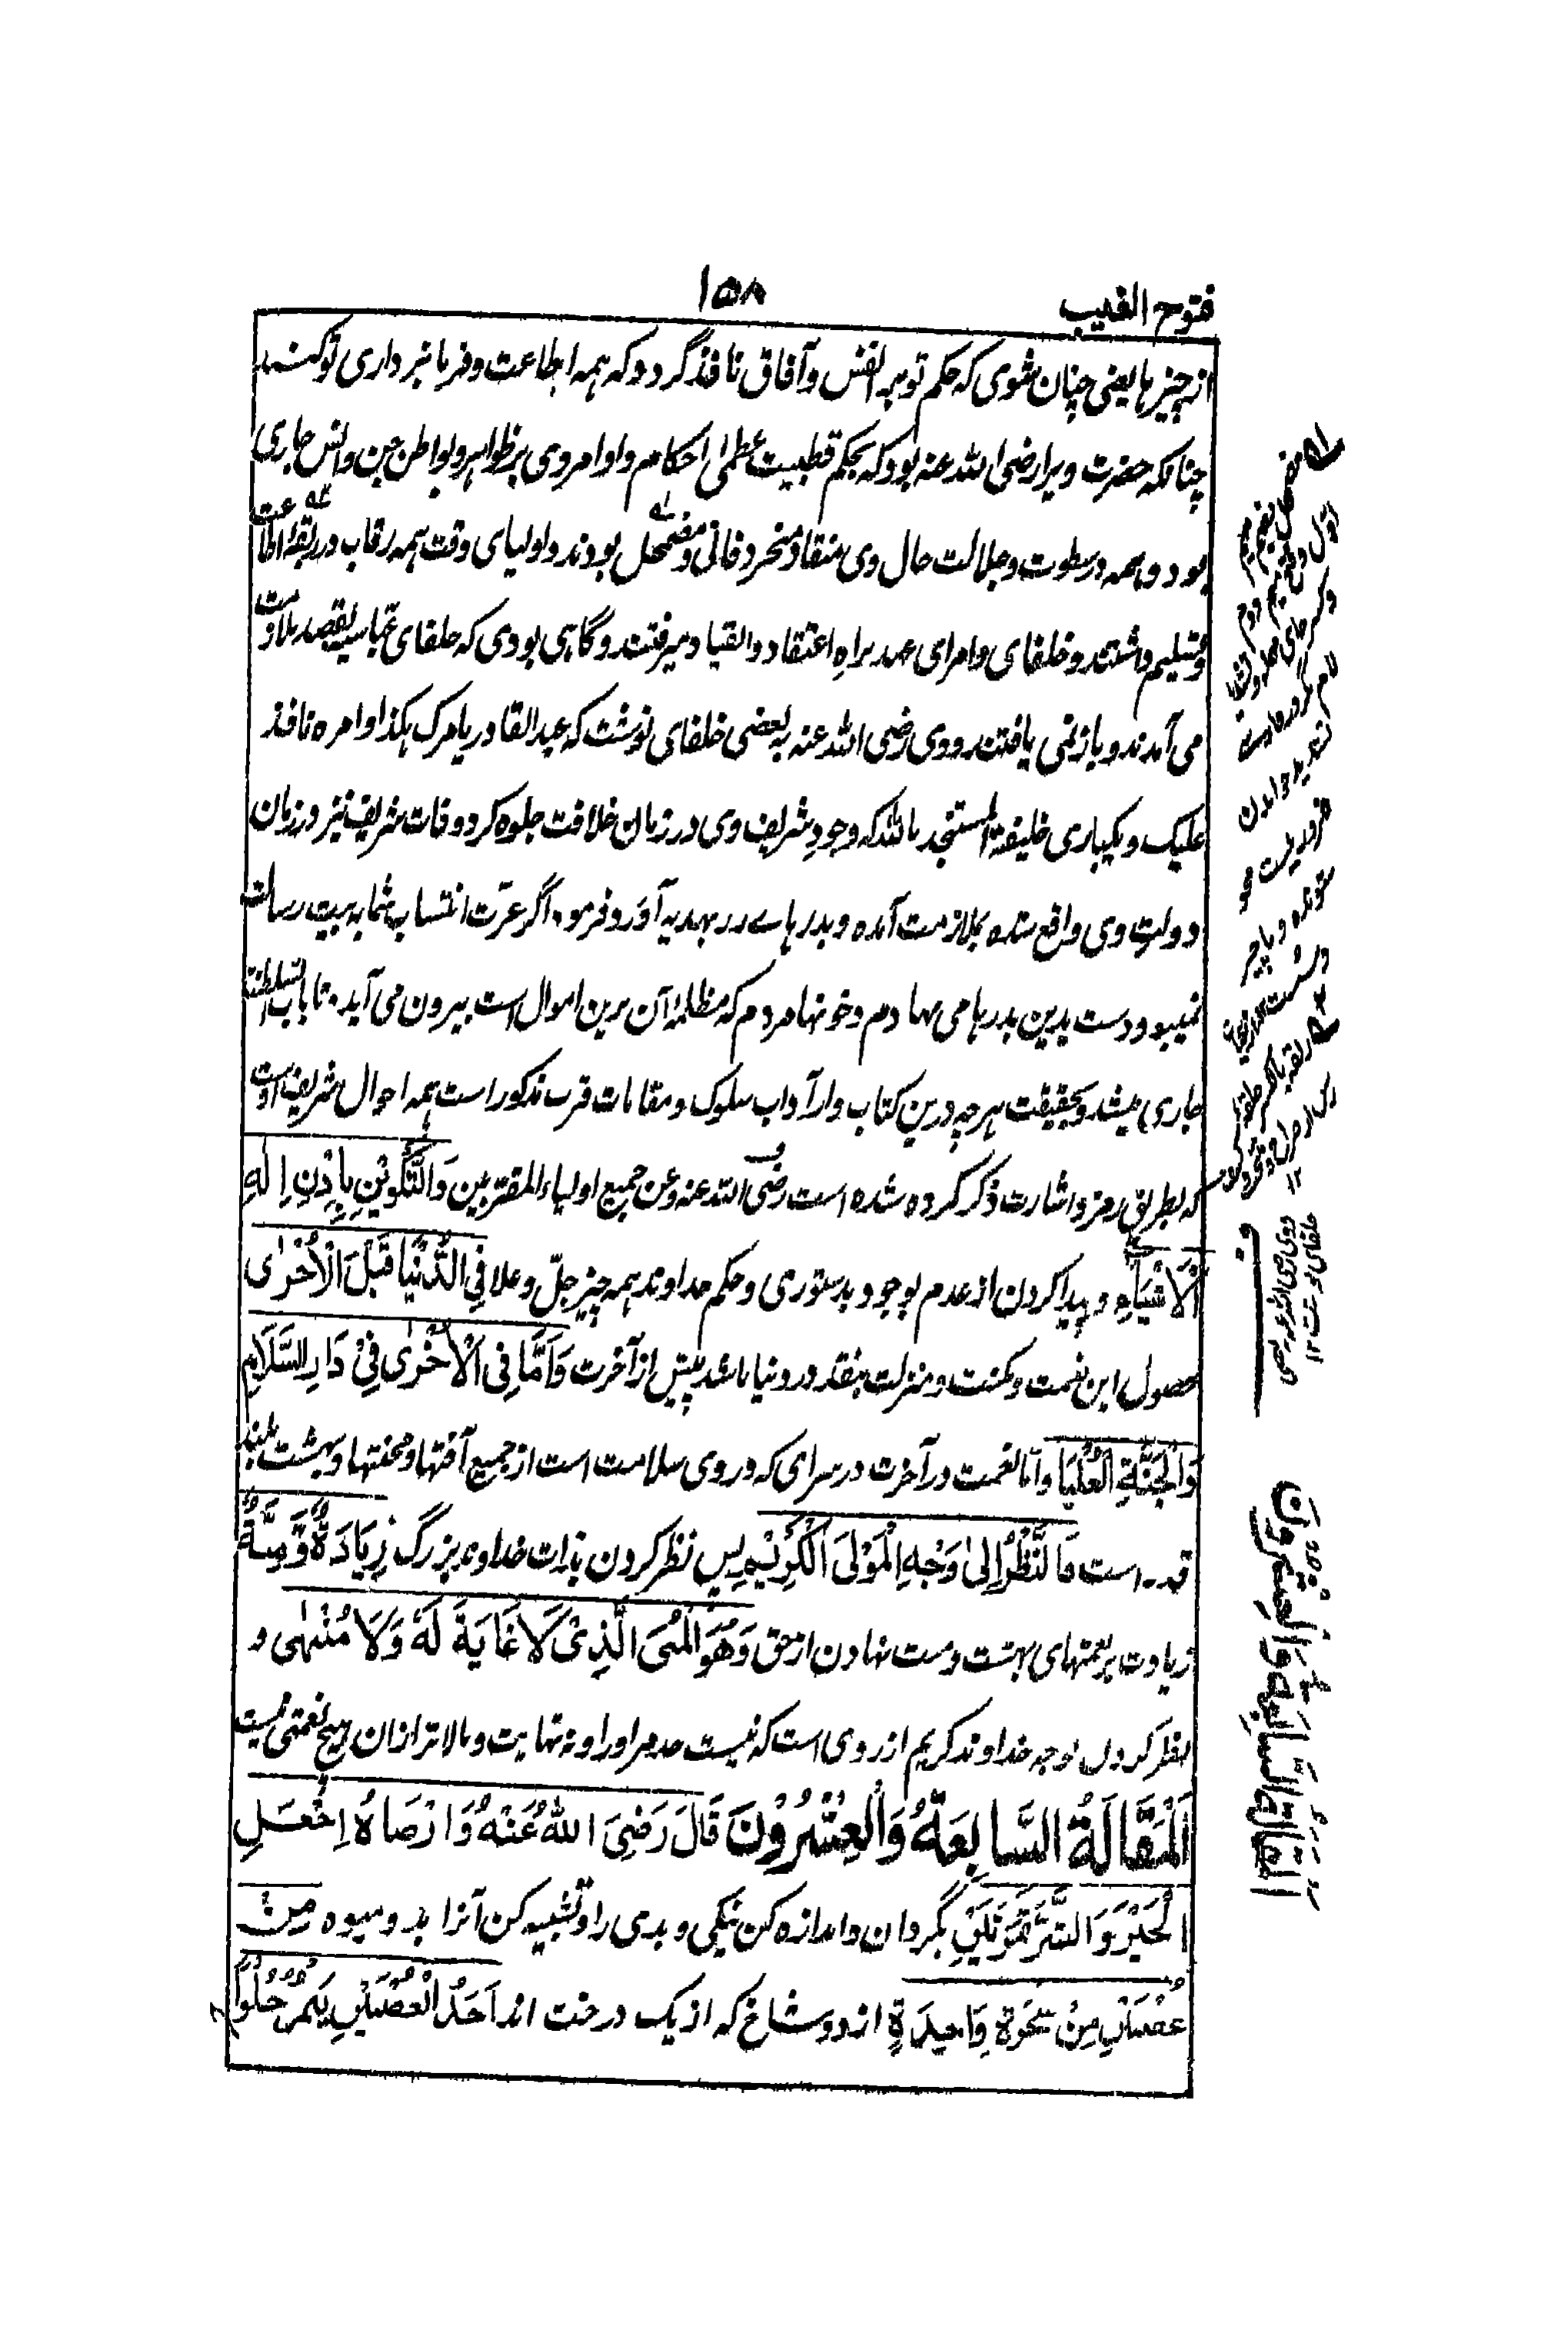 ۱۵۸
فتوح الغیب
از چیزها یعنی چنان شوی که حکم تو بر انفس و آفاق نافذ گردد و که همه اطاعت و فرمانبرداری تو کنند
چنانکه حضرت ویرا رضی الله عنه بود که بحکم قطبیت عظمیٰ احکام و اوامر وی بر ظواهر و بواطن جن و انس جاری
بود و همه در سطوت و جلالت حال وی منقاد و مسخر و فانی و مضمحل بودند و اولیای وقت همه رقاب در ربقهٔ اطاعت
و تسلیم داشتند و خلفای و امرای عهد براه اعتقاد و انقیاد میرفتند و گاهی بودی که خلفای عباسیه بقصد ملازمت
می آمدند و باز نمی یافتند و وی رضی الله عنه به بعضی خلفای نوشت که عبد القادر یامرک بکذا و امره نافذ
علیک و یکباری خلیفة المستنجد بالله که وجود شریف وی در زمان خلافت جلوه کرد و وفات شریف نیز در زمان
دولت وی واقع شده بملازمت آمده و بدرهاے زر بهدیه آورد و فرمود اگر عزت انتساب شما به بیت رسالت
نمیبود و دست بدین بدرها می نهادم و خونها مردم که مظلمهٔ آن برین اموال است بیرون می آید تا باب السلطنة
جاری میشد و بحقیقت هر چه درین کتاب از آداب سلوک و مقامات قرب مذکور است همه احوال شریف اوست
که بطریق رمز و اشارت ذکر کرده شده است رضی الله عنه و عن جمیع اولیاء المقربین وَالتَّكْوِيْنِ بِاِذْنِ اِلٰهِ
الْاَشْيَاءِ و پیدا کردن از عدم بوجود بدستوری و حکم خداوند همه چیز جلّ و علا فِي الدُّنْيَا قَبْلَ الْاُخْرٰى
حصول این نعمت و مکنت و منزلت بنقد در دنیا باشد پیش از آخرت وَاَمَّا فِي الْاُخْرٰى فِيْ دَارِ السَّلَامِ
وَالْجَنَّةِ الْعُلْيَا و اما نعمت در آخرت در سرای که در وی سلامت است از جمیع آفتها و محنتها و بهشت بلند
قدر است فَالنَّظَرُ اِلىٰ وَجْهِ الْمَوْلَى الْكَرِيْمِ پس نظر کردن بذات خداوند بزرگ زِيَادَةٌ وَّمِنَّةٌ
زیادت بر نعمتهای بهشت و منت نهادن از حق وَهُوَ الْمُنَى الَّذِيْ لَا غَايَةَ لَهٗ وَلَا مُنْتَهٰى و
نظر کردن بوجه خداوند کریم آرزوی است که نیست حد مر او را و نه نهایت و بالاتر ازان هیچ نعمتی نیست
اَلْمَقَالَةُ السَّابِعَةُ وَالْعِشْرُوْنَ قَالَ رَضِيَ اللّٰهُ عَنْهُ وَاَرْضَاهُ اِجْعَلِ
الْخَيْرَ وَالشَّرَّ ثَمَرَتَيْنِ بگردان و اندازه کن نیکی و بدی را و تشبیه کن آنرا بدو میوه مِنْ
غُصْنَيْنِ مِنْ شَجَرَةٍ وَاحِدَةٍ از دو شاخ که از یک درخت اند اَحَدُ الْغُصْنَيْنِ يُثْمِرُ حُلْوًا
المقالة السابعة والعشرون